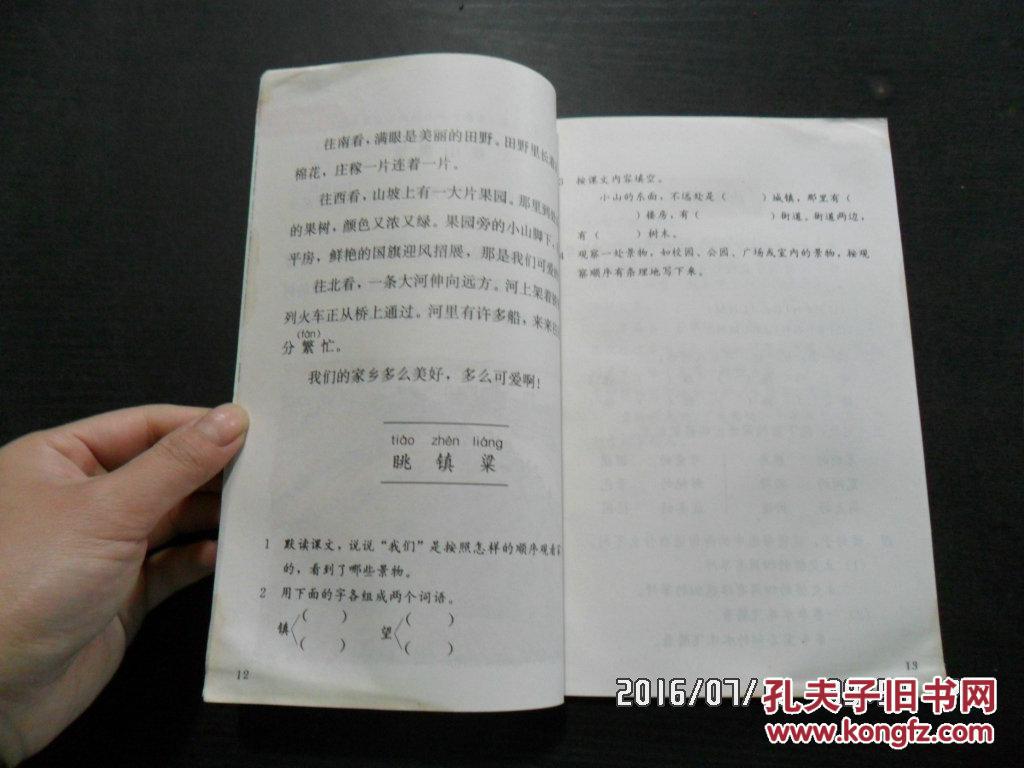 往南看，满眼是美丽的田野。田野里长着
棉花，庄稼一片连着一片。
往西看，山坡上有一大片果园。那里到处
的果树，颜色又浓又绿。果园旁的小山脚下，
平房，鲜艳的国旗迎风招展，那是我们可爱的
往北看，一条大河伸向远方。河上架着
列火车正从桥上通过。河里有许多船，来来往
(fán)
分繁忙。
我们的家乡多么美好，多么可爱啊！
tiào zhèn liáng
眺 镇 粱
1 默读课文，说说“我们”是按照怎样的顺序观看
的，看到了哪些景物。
2 用下面的字各组成两个词语。
( ) ( )
镇 望
( ) ( )
12
3 按课文内容填空。
小山的东面，不远处是（ ）城镇，那里有（
）楼房，有（ ）街道。街道两边，
有（ ）树木。
4 观察一处景物，如校园、公园、广场或室内的景物，按观
察顺序有条理地写下来。
13
2016/07/
孔夫子旧书网
www.kongfz.com